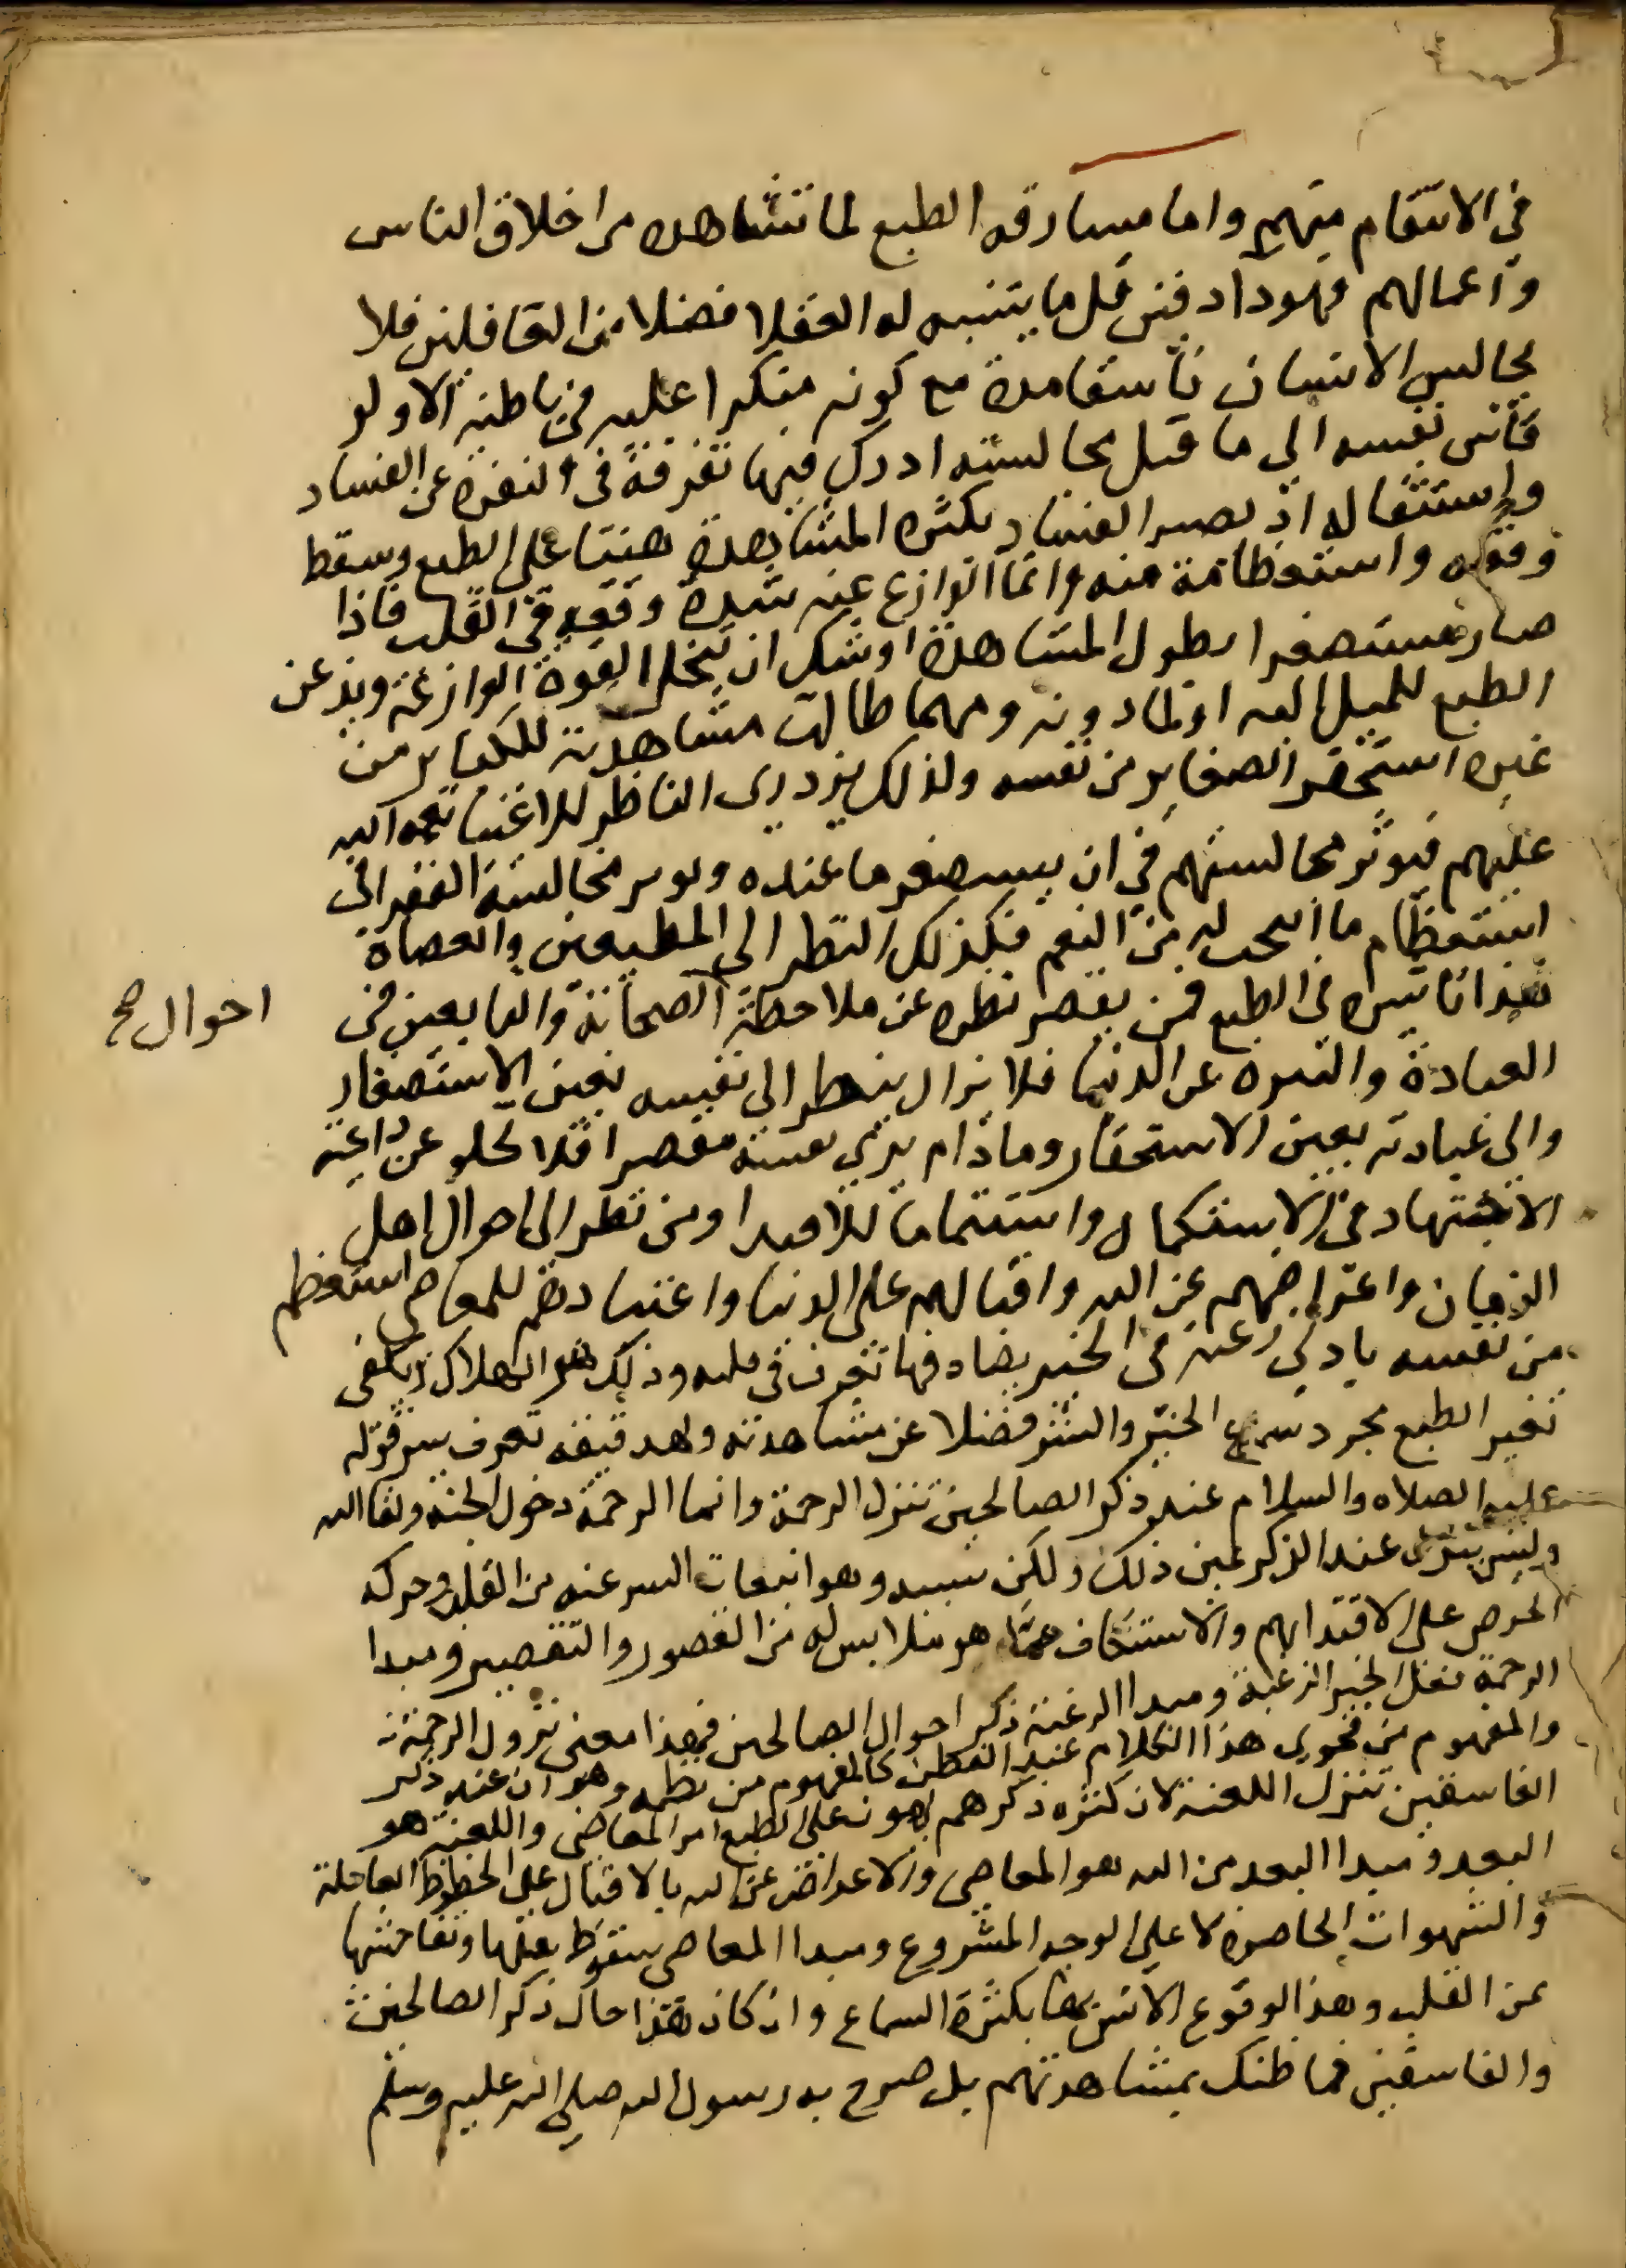 في الانتقام منهم واما مسارقه الطبع لما تشاهده من اخلاق الناس
واعمالهم فهو داء دفين قل ما يتنبه له العقلا فضلا من الغافلين فلا
يجالس الانسان فاسقا مدة مع كونه منكرا عليه في باطنه الا ولو
قاس نفسه الي ما قبل مجالسته ادرك فيها تفرقة في النفره عن الفساد
واستثقاله اذ يصير الفساد بكثره المشاهدة هينا على الطبع وسقط
وقعه واستعظامه منه وانما الوازع عنه شدة وقعه في القلب فاذا
صار مستصغرا بطول المشاهدة اوشك ان تنحل القوة الوازعة ويذعن
الطبع للميل اليه او لما دونه ومهما طالت مشاهدته للكباير من
غيره استحقر الصغاير من نفسه ولذلك يزدري الناظر للاغنيا نعمه الله
عليهم فيوثر مجالستهم في ان يستصغر ما عنده ويوثر مجالسة الفقرا في
استعظام ما اتيح له من النعم فكذلك النظر الي المطيعين والعصاة
هذا تاثيره في الطبع فمن يقصر نظره عن ملاحظة الصحابة والتابعين في
احوال صح
العبادة والتنزه عن الدنيا فلا يزال ينظر الي نفسه بعين الاستصغار
والي عبادته بعين الاستحقار وما دام يري نفسه مقصرا فلا يخلو عن داعية
الاجتهاد في الاستكمال واستتماما للاقتدا ومن نظر الى احوال اهل
الزمان واعراضهم عن الله واقبالهم على الدنيا واعتيادهم للمعاصي استعظم
من نفسه بادني رغبة في الخير يصادفها تعرف في قلبه وذلك هو الهلاك ويكفي
تغير الطبع مجرد سماع الخير والشر فضلا عن مشاهدته وبهذه دقيقه تعرف سر قوله
عليه الصلاه والسلام عند ذكر الصالحين تنزل الرحمة وانما الرحمة دخول الجنة ولقا الله
وليس ينزل عند الذكر عين ذلك ولكن سببه وهو انبعاث السر عنه من القلب وحركه
الحرص على الاقتدا بهم والاستنكاف عما هو ملابس له من القصور والتقصير ومبدا
الرحمة فعل الخير الرغبة ومبدا الرغبة ذكر احوال الصالحين فهذا معنى نزول الرحمة
والمفهوم من فحوي هذا الكلام عند الفطن كالمفهوم من نطقه وهو ان عند ذكر
الفاسقين تنزل اللعنة لان كثره ذكرهم يهون على الطبع امر المعاصي واللعنة هو
البعد ومبدا البعد من الله هو المعاصي والاعراض عن الله بالاقبال على الحظوظ العاجلة
والشهوات الحاضره لا علي الوجه المشروع ومبدا المعاصي سقوط ثقلها وتفاحشها
عن القلب وهذا الوقوع الانس بها بكثرة السماع وان كان هذا حال ذكر الصالحين
والفاسقين فما ظنك بمشاهدتهم بل صرح به رسول الله صلى الله عليه وسلم